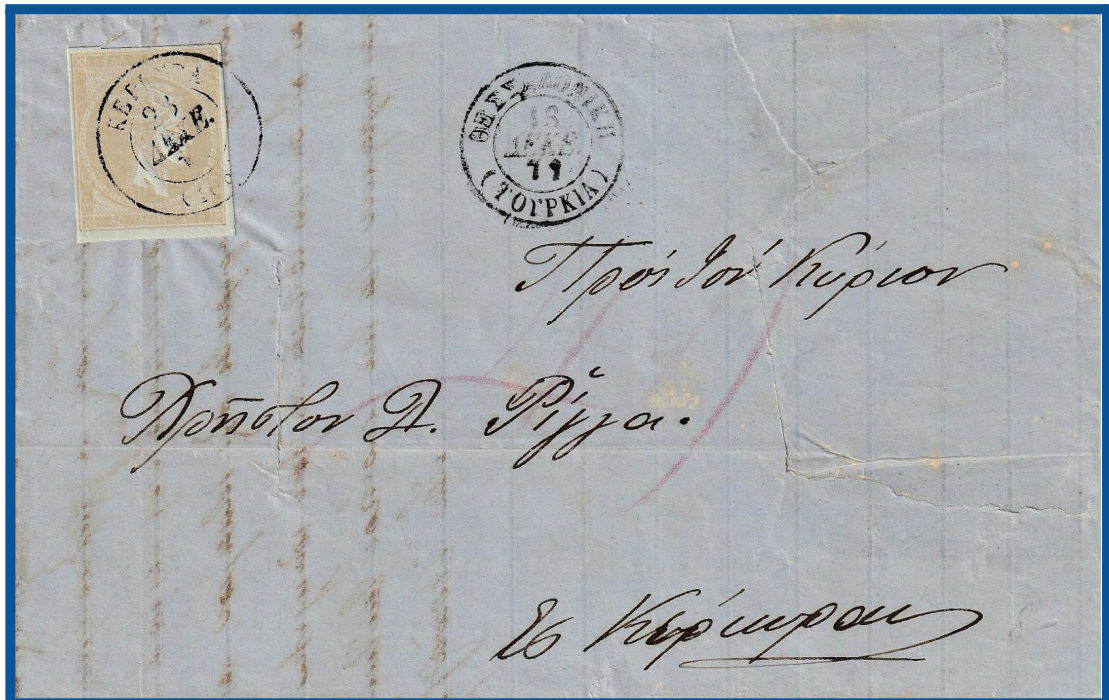 ΚΕΡΚΥΡΑ
23
ΔΕΚΕ.
ΘΕΣΣΑΛΟΝΙΚΗ
13
ΔΕΚΕ.
77
(ΤΟΥΡΚΙΑ)
Πρὸς τὸν Κύριον
Χρῆστον Δ. Ρίγγα.
Εἰς Κέρκυραν